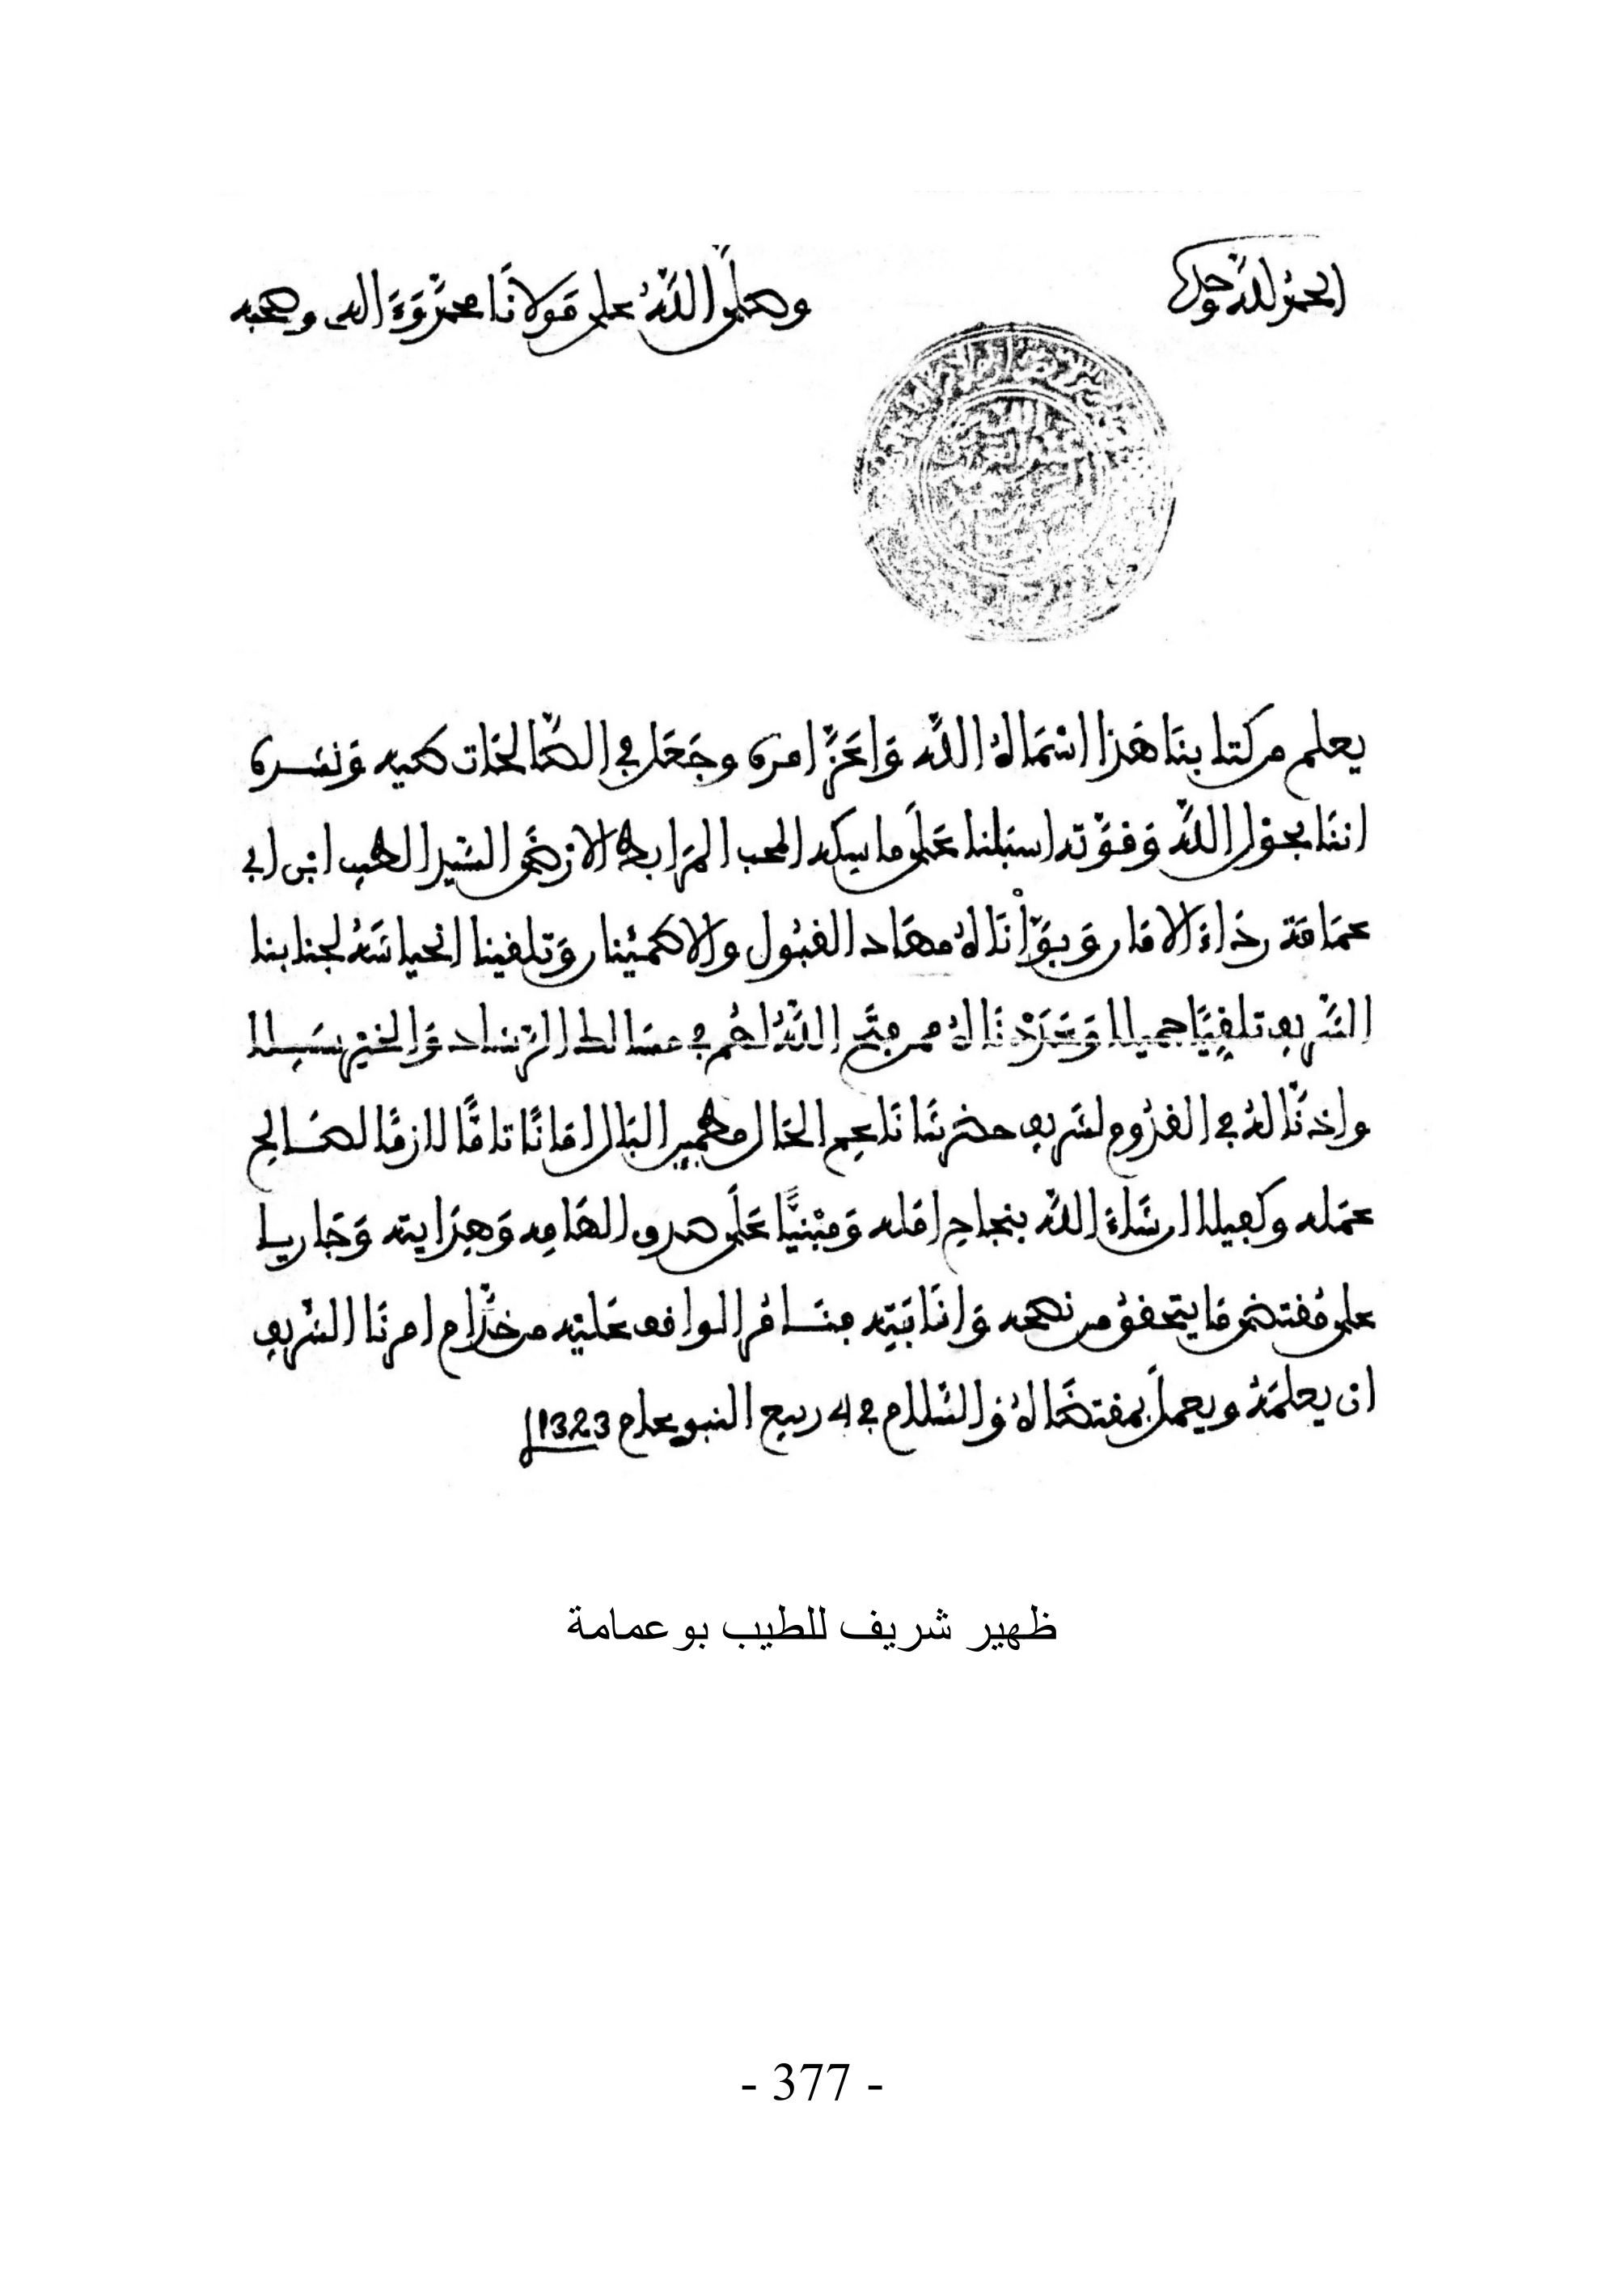 الحمد لله وحده
وصلى الله على مولانا محمد وءاله وصحبه
يعلم من كتابنا هذا اسماه الله واعز امره وجعل في الصالحات طيه ونشره
اننا بحول الله وقوته اسبلنا على ماسكه المحب المرابط الارضى السيد الطيب ابن ابي
عمامة رداء الامان وبوأناه مهاد القبول والاطمئنان وتلقينا انحياشه لجنابنا
الشريف تلقيا جميلا وعددناه ممن فتح الله لهم في مسالك الرشاد والخير سبيلا
واذنا له في القدوم لشريف حضرتنا ناعم الحال مطمئن البال امانا تاما لازما لصالح
عمله وكفيلا ان شاء الله بنجاح امله ومبنيا على صدق الطاعة وهدايته وجاريا
على مقتضى ما يتحقق من نصحه وانابته فنامر الواقف عليه من خدام امرنا الشريف
ان يعلمه ويعمل بمقتضاه والسلام في 4 ربيع النبوي عام 1323
ظهير شريف للطيب بوعمامة
- 377 -